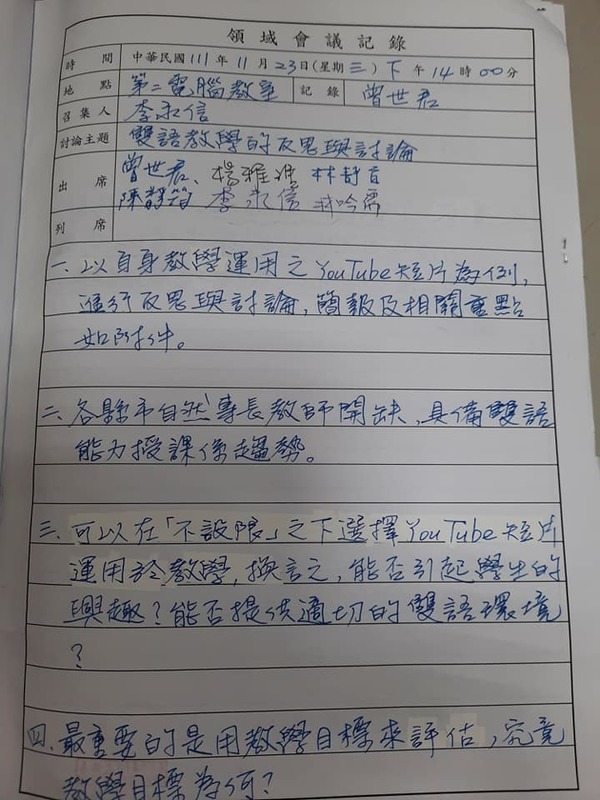 領域會議記錄
時間 中華民國111年11月23日(星期三)下午14時00分
地點 第二電腦教室 記錄 曾世君
召集人 李永信
討論主題 雙語教學的反思與討論
出席 曾世君、楊雅
陳 李永信 林吟
列席
一、以自身教學運用之YouTube短片為例,
進行反思與討論,簡報及相關重點
如附件。
二、各縣市自然專長教師開缺,具備雙語
能力授課係趨勢。
三、可以在「不設限」之下選擇YouTube短片
運用於教學,換言之,能否引起學生的
興趣?能否提供適切的雙語環境
?
四、最重要的是用教學目標來評估,究竟
教學目標為何?